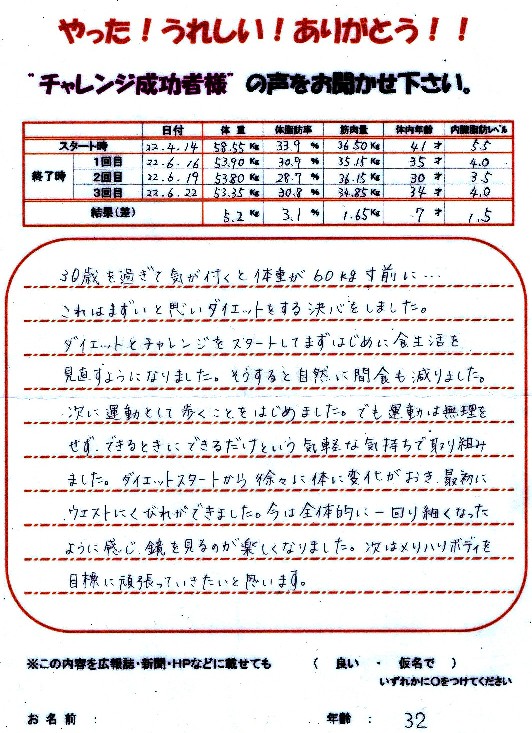 やった！うれしい！ありがとう！！
"チャレンジ成功者様"の声をお聞かせ下さい。
日付 体重 体脂肪率 筋肉量 体内年齢 内臓脂肪ﾚﾍﾞﾙ
スタート時 22.4.14 58.55 Kg 33.9 % 36.50 Kg 41 才 5.5
終了時 1回目 22.6.16 53.90 Kg 30.9 % 35.15 Kg 35 才 4.0
2回目 22.6.19 53.80 Kg 28.7 % 36.15 Kg 30 才 3.5
3回目 22.6.22 53.35 Kg 30.8 % 34.85 Kg 34 才 4.0
結果（差） 5.2 Kg 3.1 % 1.65 Kg 7 才 1.5
30歳を過ぎて気が付くと体重が60kg寸前に…
これはまずいと思いダイエットをする決心をしました。
ダイエットとチャレンジをスタートしてまずはじめに食生活を
見直すようになりました。そうすると自然に間食も減りました。
次に運動として歩くことをはじめました。でも運動は無理を
せず、できるときにできるだけという気軽な気持ちで取り組み
ました。ダイエットスタートから徐々に体に変化がおき、最初に
ウエストにくびれができました。今は全体的に一回り細くなった
ように感じ、鏡を見るのが楽しくなりました。次はメリハリボディを
目標に頑張っていきたいと思います。
※この内容を広報誌・新聞・HPなどに載せても （ 良い ・ 仮名で ）
いずれかに○をつけてください
お名前 ： 年齢 ： 32